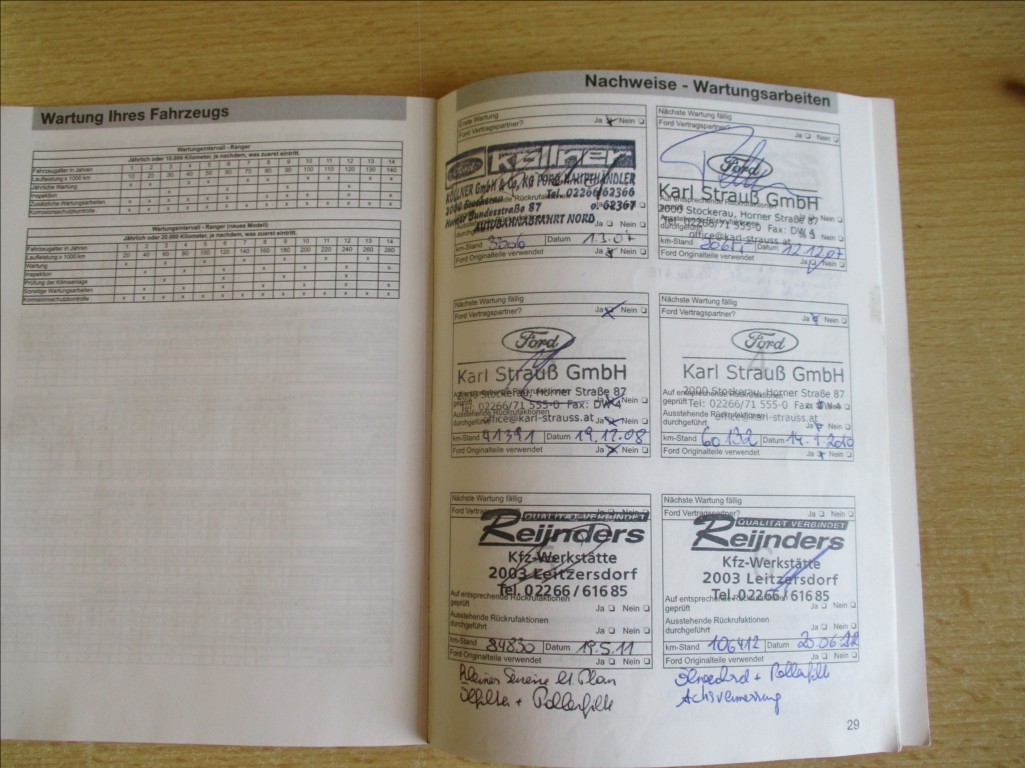 Wartung Ihres Fahrzeugs
Wartungsintervall - Ranger
Jährlich oder 10.000 Kilometer, je nachdem, was zuerst eintritt.
Fahrzeugalter in Jahren 1 2 3 4 5 6 7 8 9 10 11 12 13 14
Laufleistung x 1000 km 10 20 30 40 50 60 70 80 90 100 110 120 130 140
Jährliche Wartung
Inspektion
Zusätzliche Wartungsarbeiten
Korrosionsschutzkontrolle
Wartungsintervall - Ranger (neues Modell)
Jährlich oder 20.000 Kilometer, je nachdem, was zuerst eintritt.
Fahrzeugalter in Jahren 1 2 3 4 5 6 7 8 9 10 11 12 13 14
Laufleistung x 1000 km 20 40 60 80 100 120 140 160 180 200 220 240 260 280
Wartung
Inspektion
Prüfung der Klimaanlage
Sonstige Wartungsarbeiten
Korrosionsschutzkontrolle
Nachweise - Wartungsarbeiten
Erste Wartung
Ford Vertragspartner? Ja Nein
Ford köllner
KÖLLNER GmbH & Co. KG FORD HAUPTHÄNDLER
2000 Stockerau Tel. 02266/62366
Horner Bundesstraße 87 62367
AUTOBAHNABFAHRT NORD
km-Stand Datum 1.3.07
Ford Originalteile verwendet Ja Nein
Nächste Wartung fällig
Ford Vertragspartner? Ja Nein
Ford
Karl Strauß GmbH
2000 Stockerau, Horner Straße 87
Tel: 02266/71 555-0 Fax: DW 4
office@karl-strauss.at
km-Stand Datum 12.12.07
Ford Originalteile verwendet Ja Nein
Nächste Wartung fällig
Ford Vertragspartner? Ja Nein
Ford
Karl Strauß GmbH
2000 Stockerau, Horner Straße 87
geprüft Tel: 02266/71 555-0 Fax: DW 4
Ausstehende Rückrufaktionen
durchgeführt office@karl-strauss.at
km-Stand 41391 Datum 19.12.08
Ford Originalteile verwendet Ja Nein
Nächste Wartung fällig
Ford Vertragspartner? Ja Nein
Ford
Karl Strauß GmbH
Auf entsprechende Rückrufaktionen
2000 Stockerau, Horner Straße 87
geprüft Tel: 02266/71 555-0 Fax: DW 4
Ausstehende Rückrufaktionen
office@karl-strauss.at
durchgeführt Ja Nein
km-Stand 60132 Datum 14.1.2010
Ford Originalteile verwendet Ja Nein
Nächste Wartung fällig
Ford Vertragspartner? Ja Nein
QUALITÄT VERBINDET
Reijnders
Kfz-Werkstätte
2003 Leitzersdorf
Tel. 02266/61685
Auf entsprechende Rückrufaktionen
geprüft Ja Nein
Ausstehende Rückrufaktionen
durchgeführt
Ja Nein
km-Stand 84830 Datum 19.5.11
Ford Originalteile verwendet Ja Nein
Kleines Service lt Plan
Ölfilter + Pollenfilter
Nächste Wartung fällig
Ford Vertragspartner? Ja Nein
QUALITÄT VERBINDET
Reijnders
Kfz-Werkstätte
2003 Leitzersdorf
Tel. 02266/61685
Auf entsprechende Rückrufaktionen
geprüft Ja Nein
Ausstehende Rückrufaktionen
durchgeführt
Ja Nein
km-Stand 106412 Datum 20.06.12
Ford Originalteile verwendet Ja Nein
+ Pollenfilt
Achsvermessung
29